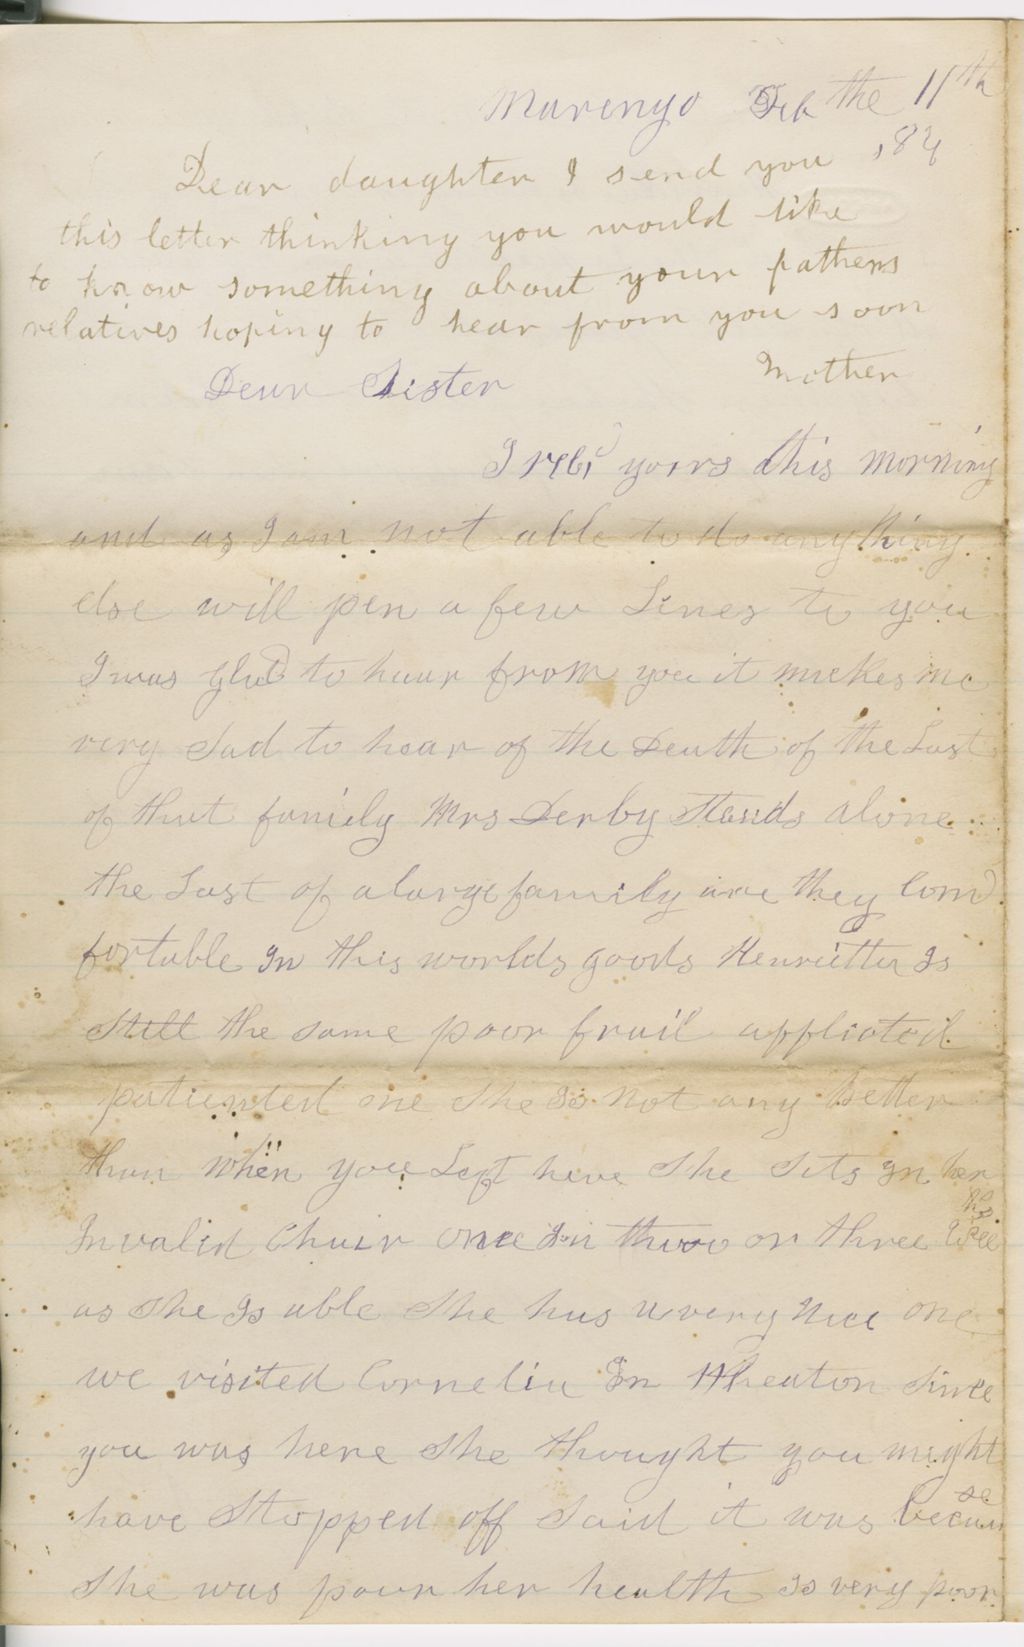 Marengo Feb the 11th
,84
Dear daughter I send you
this letter thinking you would like
to know something about your fathers
relatives hoping to hear from you soon
Mother
Dear Sister
I recd yours this morning
and as I am not able to do anything
else will pen a few Lines to you
I was glad to hear from you it makes me
very Sad to hear of the Death of the Last
of that family Mrs Derby Stands alone
the Last of a large family are they Com
fortable In this worlds goods Henrietta Is
Still the same poor frail afflicted
patiented one She Is not any better
than when you Left here She Sits In her
Invalid Chair once In two or three weeks
as She Is able She has a very Nice one
we visited Cornelia In Wheaton Since
you was here She thought you might
have Stopped off Said it was because
She was poor her health Is very poor